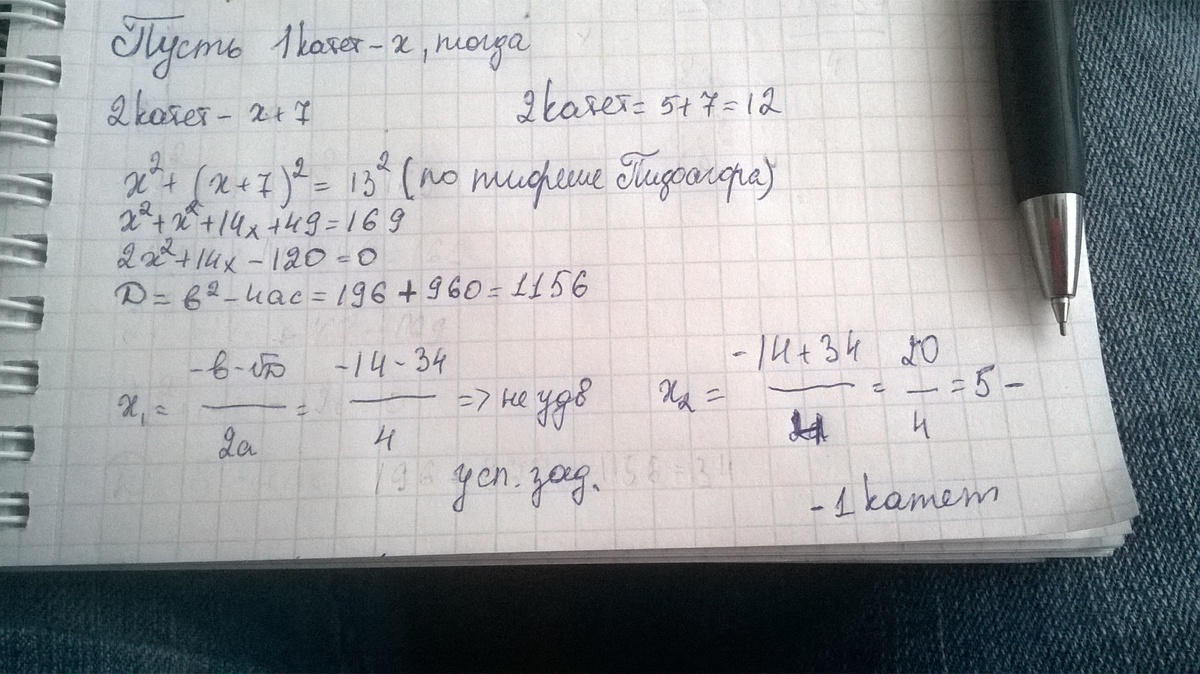 Пусть 1катет - x, тогда
2катет - x+7
2катет = 5+7=12
x²+(x+7)²= 13² (по тиореме Пифагора)
x²+x²+14x+49=169
2x²+14x-120=0
D = в²-4ac = 196+960=1156
x₁ = (-в-√D)/2a = (-14-34)/4 => не удв
усп. зад.
x₂ = (-14+34)/4 = 20/4 = 5 -
- 1катет